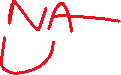 NA
U